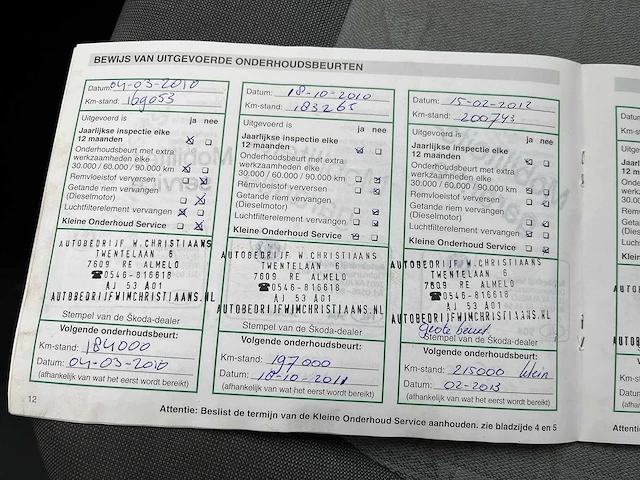 BEWIJS VAN UITGEVOERDE ONDERHOUDSBEURTEN
Datum: 04-03-2010
Km-stand: 169053
Uitgevoerd is ja nee
Jaarlijkse inspectie elke
12 maanden
Onderhoudsbeurt met extra
werkzaamheden elke
30.000 / 60.000 / 90.000 km
Remvloeistof verversen
Getande riem vervangen
(Dieselmotor)
Luchtfilterelement vervangen
Kleine Onderhoud Service
AUTOBEDRIJF W.CHRISTIAANS
TWENTELAAN 6
7609 RE ALMELO
☎0546-816618
AJ 53 A01
AUTOBEDRIJFWIMCHRISTIAANS.NL
Stempel van de Škoda-dealer
Volgende onderhoudsbeurt:
Km-stand: 184000
Datum: 04-03-2010
(afhankelijk van wat het eerst wordt bereikt)
12
Datum: 18-10-2010
Km-stand: 183265
Uitgevoerd is ja nee
Jaarlijkse inspectie elke
12 maanden
Onderhoudsbeurt met extra
werkzaamheden elke
30.000 / 60.000 / 90.000 km
Remvloeistof verversen
Getande riem vervangen
(Dieselmotor)
Luchtfilterelement vervangen
Kleine Onderhoud Service
AUTOBEDRIJF W.CHRISTIAANS
TWENTELAAN 6
7609 RE ALMELO
☎0546-816618
AJ 53 A01
AUTOBEDRIJFWIMCHRISTIAANS.NL
Stempel van de Škoda-dealer
Volgende onderhoudsbeurt:
Km-stand: 197000
Datum: 18-10-2011
(afhankelijk van wat het eerst wordt bereikt)
Datum: 15-02-2012
Km-stand: 200743
Uitgevoerd is ja nee
Jaarlijkse inspectie elke
12 maanden
Onderhoudsbeurt met extra
werkzaamheden elke
30.000 / 60.000 / 90.000 km
Remvloeistof verversen
Getande riem vervangen
(Dieselmotor)
Luchtfilterelement vervangen
Kleine Onderhoud Service
AUTOBEDRIJF W.CHRISTIAANS
TWENTELAAN 6
7609 RE ALMELO
☎0546-816618
AJ 53 A01
AUTOBEDRIJFWIMCHRISTIAANS.NL
Grote beurt
Stempel van de Škoda-dealer
Volgende onderhoudsbeurt:
Km-stand: 215000 klein
Datum: 02-2013
(afhankelijk van wat het eerst wordt bereikt)
Attentie: Beslist de termijn van de Kleine Onderhoud Service aanhouden. zie bladzijde 4 en 5